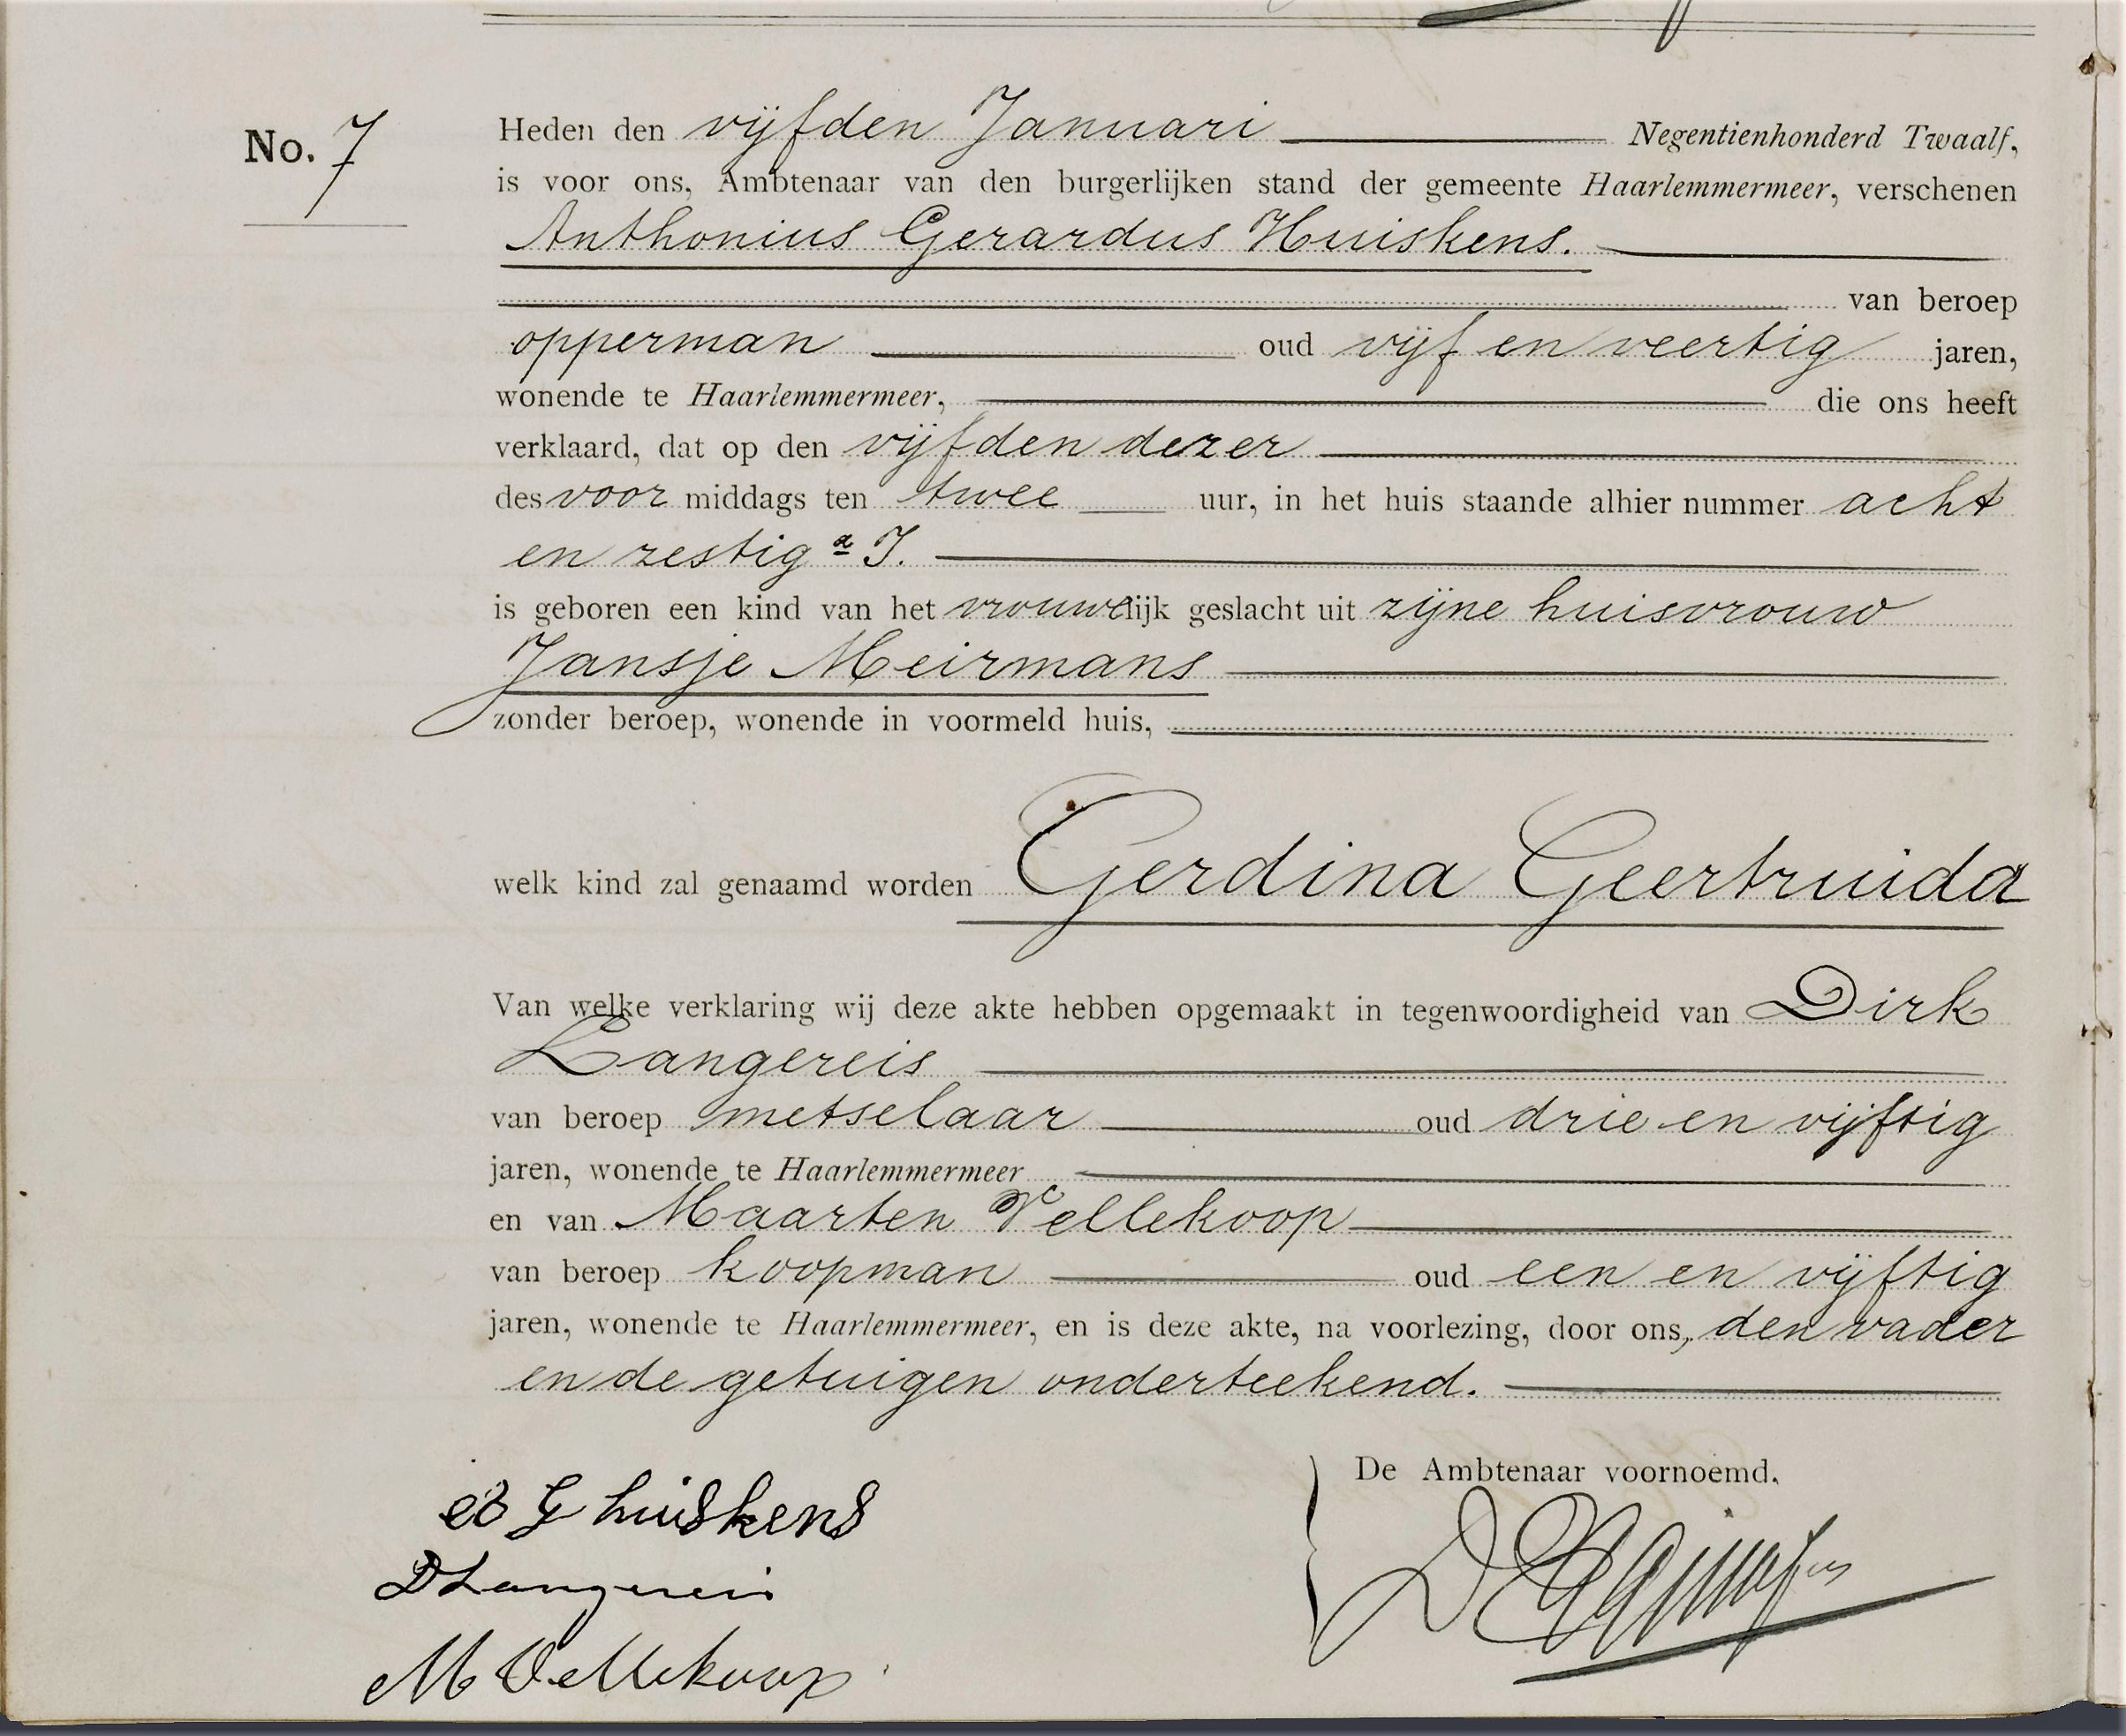 No. 7
Heden den vijfden Januari Negentienhonderd Twaalf,
is voor ons, Ambtenaar van den burgerlijken stand der gemeente Haarlemmermeer, verschenen
Anthonius Gerardus Huiskens.
van beroep
opperman oud vijf en veertig jaren,
wonende te Haarlemmermeer, die ons heeft
verklaard, dat op den vijfden dezer
des voor middags ten twee uur, in het huis staande alhier nummer acht
en zestig a J.
is geboren een kind van het vrouwelijk geslacht uit zijne huisvrouw
Jansje Meirmans
zonder beroep, wonende in voormeld huis,
welk kind zal genaamd worden Gerdina Geertruida
Van welke verklaring wij deze akte hebben opgemaakt in tegenwoordigheid van Dirk
Langereis
van beroep metselaar oud drie en vijftig
jaren, wonende te Haarlemmermeer
en van Maarten Vellekoop
van beroep koopman oud een en vijftig
jaren, wonende te Haarlemmermeer, en is deze akte, na voorlezing, door ons, den vader
en de getuigen onderteekend.
De Ambtenaar voornoemd.
A G huiskens
D Langereis
M Vellekoop